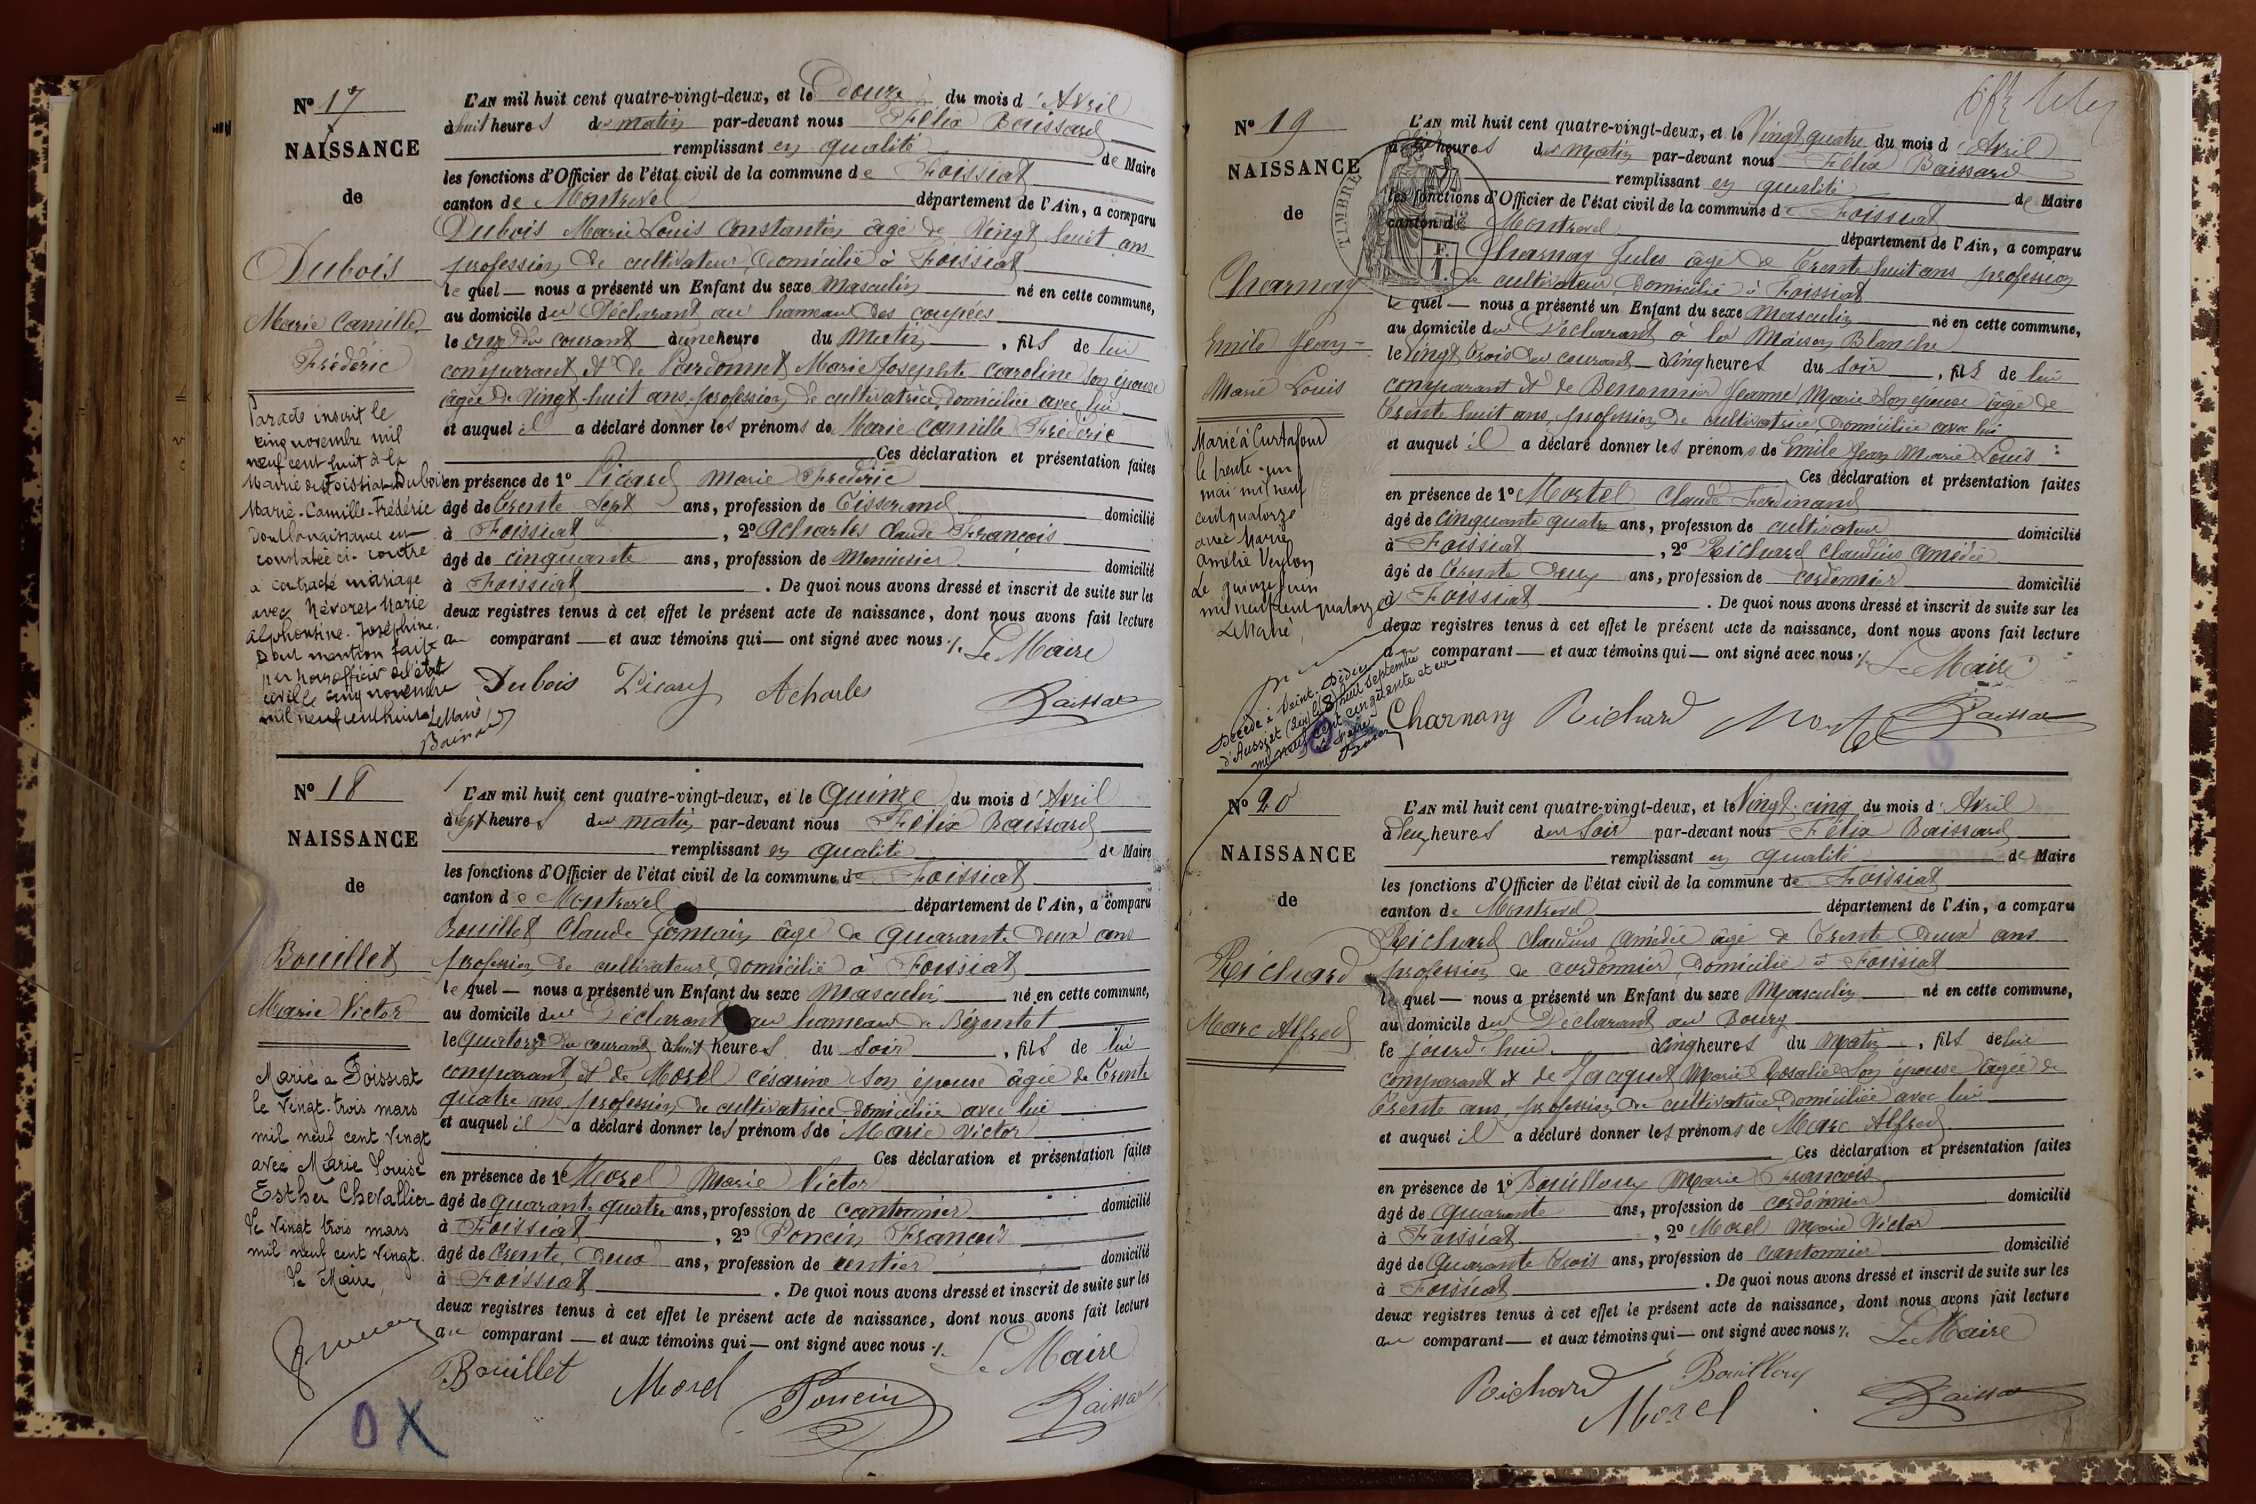 N° 17
NAISSANCE
de
Dubois
Marie Camille
Fréderic
Par acte inscrit le
cinq novembre mil
neuf cent huit à la
Mairie de Foissiat Dubois
Marie-Camille-Frédéric
dont la naissance est
constatée ci-contre
a contracté mariage
avec Nevoret Marie
Alphonsine-Joséphine.
Dont mention faite
par nous officier de l'état
civil le cinq novembre
mil neuf cent huit
Le Maire
L'AN mil huit cent quatre-vingt-deux, et le Douze du mois d'Avril
à huit heures du matin par-devant nous Félix Baissard
remplissant en qualité de Maire
les fonctions d'Officier de l'état civil de la commune de Foissiat
canton de Montrevel département de l'Ain, a comparu
Dubois Marie Louis Constantin âgé de Vingt huit ans
profession de cultivateur, domicilié à Foissiat
lequel — nous a présenté un Enfant du sexe Masculin né en cette commune,
au domicile du Déclarant au hameau des coupées
le onze du courant à une heure du Matin, fils de lui
comparant et de Perdonnet Marie Josephte caroline son épouse
âgée de Vingt huit ans profession de cultivatrice, domiciliée avec lui
et auquel il a déclaré donner les prénoms de Marie camille Fréderic
Ces déclaration et présentation faites
en présence de 1° Picard Marie Fréderic
âgé de Trente Sept ans, profession de Tisserand domicilié
à Foissiat, 2° Acharles Claude François
âgé de cinquante ans, profession de Menuisier domicilié
à Foissiat. De quoi nous avons dressé et inscrit de suite sur les
deux registres tenus à cet effet le présent acte de naissance, dont nous avons fait lecture
au comparant — et aux témoins qui — ont signé avec nous ./.
Le Maire
Dubois Picard Acharles Baissard
N° 18
NAISSANCE
de
Bouillet
Marie Victor
Marié à Foissiat
le vingt-trois mars
mil neuf cent vingt
avec Marie Louise
Esther Chevallier
Le vingt trois mars
mil neuf cent vingt.
Le Maire,
L'AN mil huit cent quatre-vingt-deux, et le Quinze du mois d'Avril
à sept heures du matin par-devant nous Félix Baissard
remplissant en qualité de Maire
les fonctions d'Officier de l'état civil de la commune de Foissiat
canton de Montrevel département de l'Ain, a comparu
Bouillet Claude Germain âgé de quarante Deux ans
profession de cultivateur, domicilié à Foissiat
lequel — nous a présenté un Enfant du sexe Masculin né en cette commune,
au domicile du Déclarant au hameau de Bézentet
le Quatorze du courant à huit heures du Soir, fils de lui
comparant et de Morel césarine son épouse âgée de Trente
quatre ans profession de cultivatrice domiciliée avec lui
et auquel il a déclaré donner les prénoms de Marie Victor
Ces déclaration et présentation faites
en présence de 1° Morel Marie Victor
âgé de quarante quatre ans, profession de cantonnier domicilié
à Foissiat, 2° Poncin François
âgé de Trente Deux ans, profession de rentier domicilié
à Foissiat. De quoi nous avons dressé et inscrit de suite sur les
deux registres tenus à cet effet le présent acte de naissance, dont nous avons fait lecture
au comparant — et aux témoins qui — ont signé avec nous ./.
Le Maire
Bouillet Morel Poncin Baissard
O X
N° 19
NAISSANCE
de
Charnay
Emile Jean-
Marie Louis
Marié à Curtafond
le trente-un
mai mil neuf
cent quatorze
avec Marie
Amélie
Le quinze juin
mil neuf cent quatorze
Le Maire,
Décédé à Saint-Didier
d'Aussiat (Ain) le huit septembre
mil neuf cent cinquante et un
TIMBRE
L'AN mil huit cent quatre-vingt-deux, et le Vingt quatre du mois d'Avril
à heures du matin par-devant nous Félix Baissard
remplissant en qualité de Maire
les fonctions d'Officier de l'état civil de la commune de Foissiat
canton de Montrevel département de l'Ain, a comparu
Charnay Jules âgé de Trente huit ans profession
de cultivateur domicilié à Foissiat
lequel — nous a présenté un Enfant du sexe Masculin né en cette commune,
au domicile du Déclarant à la Maison Blanche
le Vingt trois du courant à cinq heures du soir, fils de lui
comparant et de Benonnier Jeanne Marie son épouse âgée de
Trente huit ans, profession de cultivatrice, domiciliée avec lui
et auquel il a déclaré donner les prénoms de Emile Jean Marie Louis
Ces déclaration et présentation faites
en présence de 1° Mortel Claude Ferdinand
âgé de cinquante quatre ans, profession de cultivateur domicilié
à Foissiat, 2° Richard Claudius Amédée
âgé de Trente Deux ans, profession de cordonnier domicilié
à Foissiat. De quoi nous avons dressé et inscrit de suite sur les
deux registres tenus à cet effet le présent acte de naissance, dont nous avons fait lecture
au comparant — et aux témoins qui — ont signé avec nous ./.
Le Maire
Charnay Richard Mortel Baissard
N° 20
NAISSANCE
de
Richard
Marc Alfred
L'AN mil huit cent quatre-vingt-deux, et le Vingt-cinq du mois d'Avril
à Deux heures du soir par-devant nous Félix Baissard
remplissant en qualité de Maire
les fonctions d'Officier de l'état civil de la commune de Foissiat
canton de Montrevel département de l'Ain, a comparu
Richard Claudius Amédée âgé de Trente Deux ans
profession de cordonnier, domicilié à Foissiat
lequel — nous a présenté un Enfant du sexe Masculin né en cette commune,
au domicile du Déclarant au Bourg
le jourd'hui à cinq heures du matin, fils de lui
comparant et de Jacquet Marie Rosalie son épouse âgée de
Trente ans, profession de cultivatrice, domiciliée avec lui
et auquel il a déclaré donner les prénoms de Marc Alfred
Ces déclaration et présentation faites
en présence de 1° Bouilloux Marie François
âgé de quarante ans, profession de cordonnier domicilié
à Foissiat, 2° Morel Marie Victor
âgé de Quarante trois ans, profession de cantonnier domicilié
à Foissiat. De quoi nous avons dressé et inscrit de suite sur les
deux registres tenus à cet effet le présent acte de naissance, dont nous avons fait lecture
au comparant — et aux témoins qui — ont signé avec nous ./.
Le Maire
Richard Bouilloux
Morel Baissard